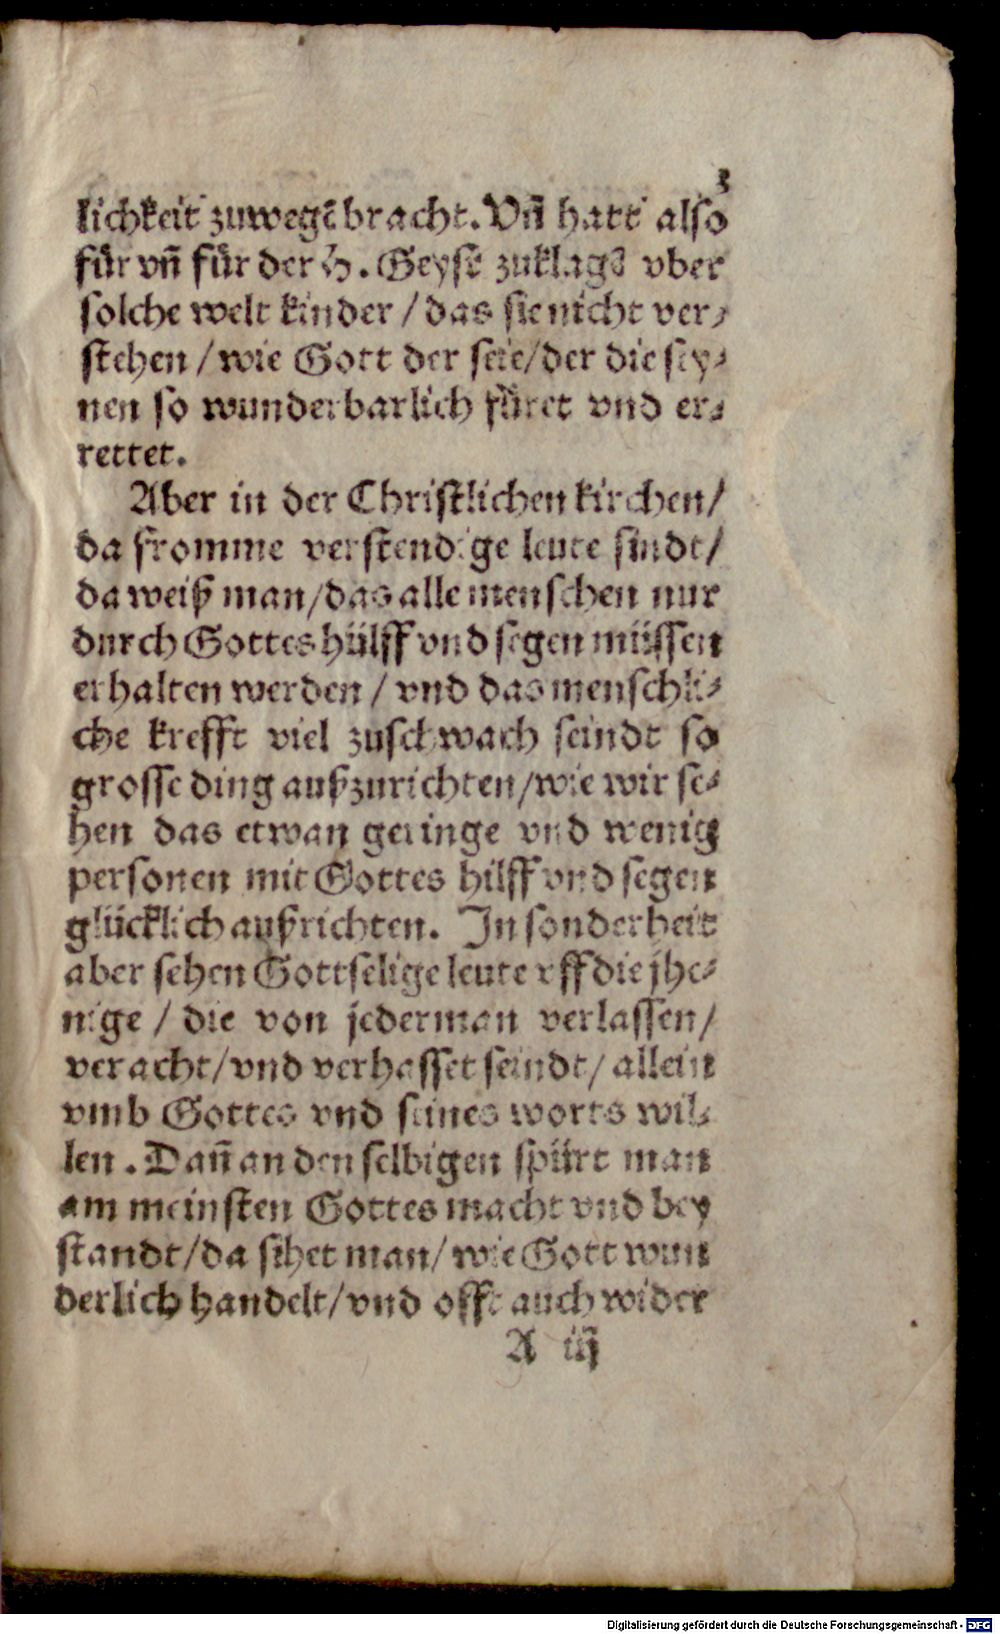 3
lichkeit zuwegẽ bracht. Vñ hatt also
für vñ für der H. Geyst zuklagẽ vber
solche welt kinder / das sie nicht ver⸗
stehen / wie Gott der seie/der die sey⸗
nen so wunderbarlich füret vnd er⸗
rettet.
Aber in der Christlichen kirchen/
da fromme verstendige leute sindt/
da weiß man/das alle menschen nur
durch Gottes hülff vnd segen müssen
erhalten werden / vnd das menschli⸗
che krefft viel zuschwach seindt so
grosse ding außzurichten/wie wir se⸗
hen das etwan geringe vnd wenig
personen mit Gottes hilff vnd segen
glücklich außrichten. In sonderheit
aber sehen Gottselige leute vff die jhe⸗
nige / die von jederman verlassen/
veracht/vnd verhasset seindt/ allein
vmb Gottes vnd seines worts wil⸗
len. Dañ an den selbigen spürt man
am meinsten Gottes macht vnd bey
standt/da sihet man/ wie Gott wun
derlich handelt/vnd offt auch wider
A iij
Digitalisierung gefördert durch die Deutsche Forschungsgemeinschaft - DFG